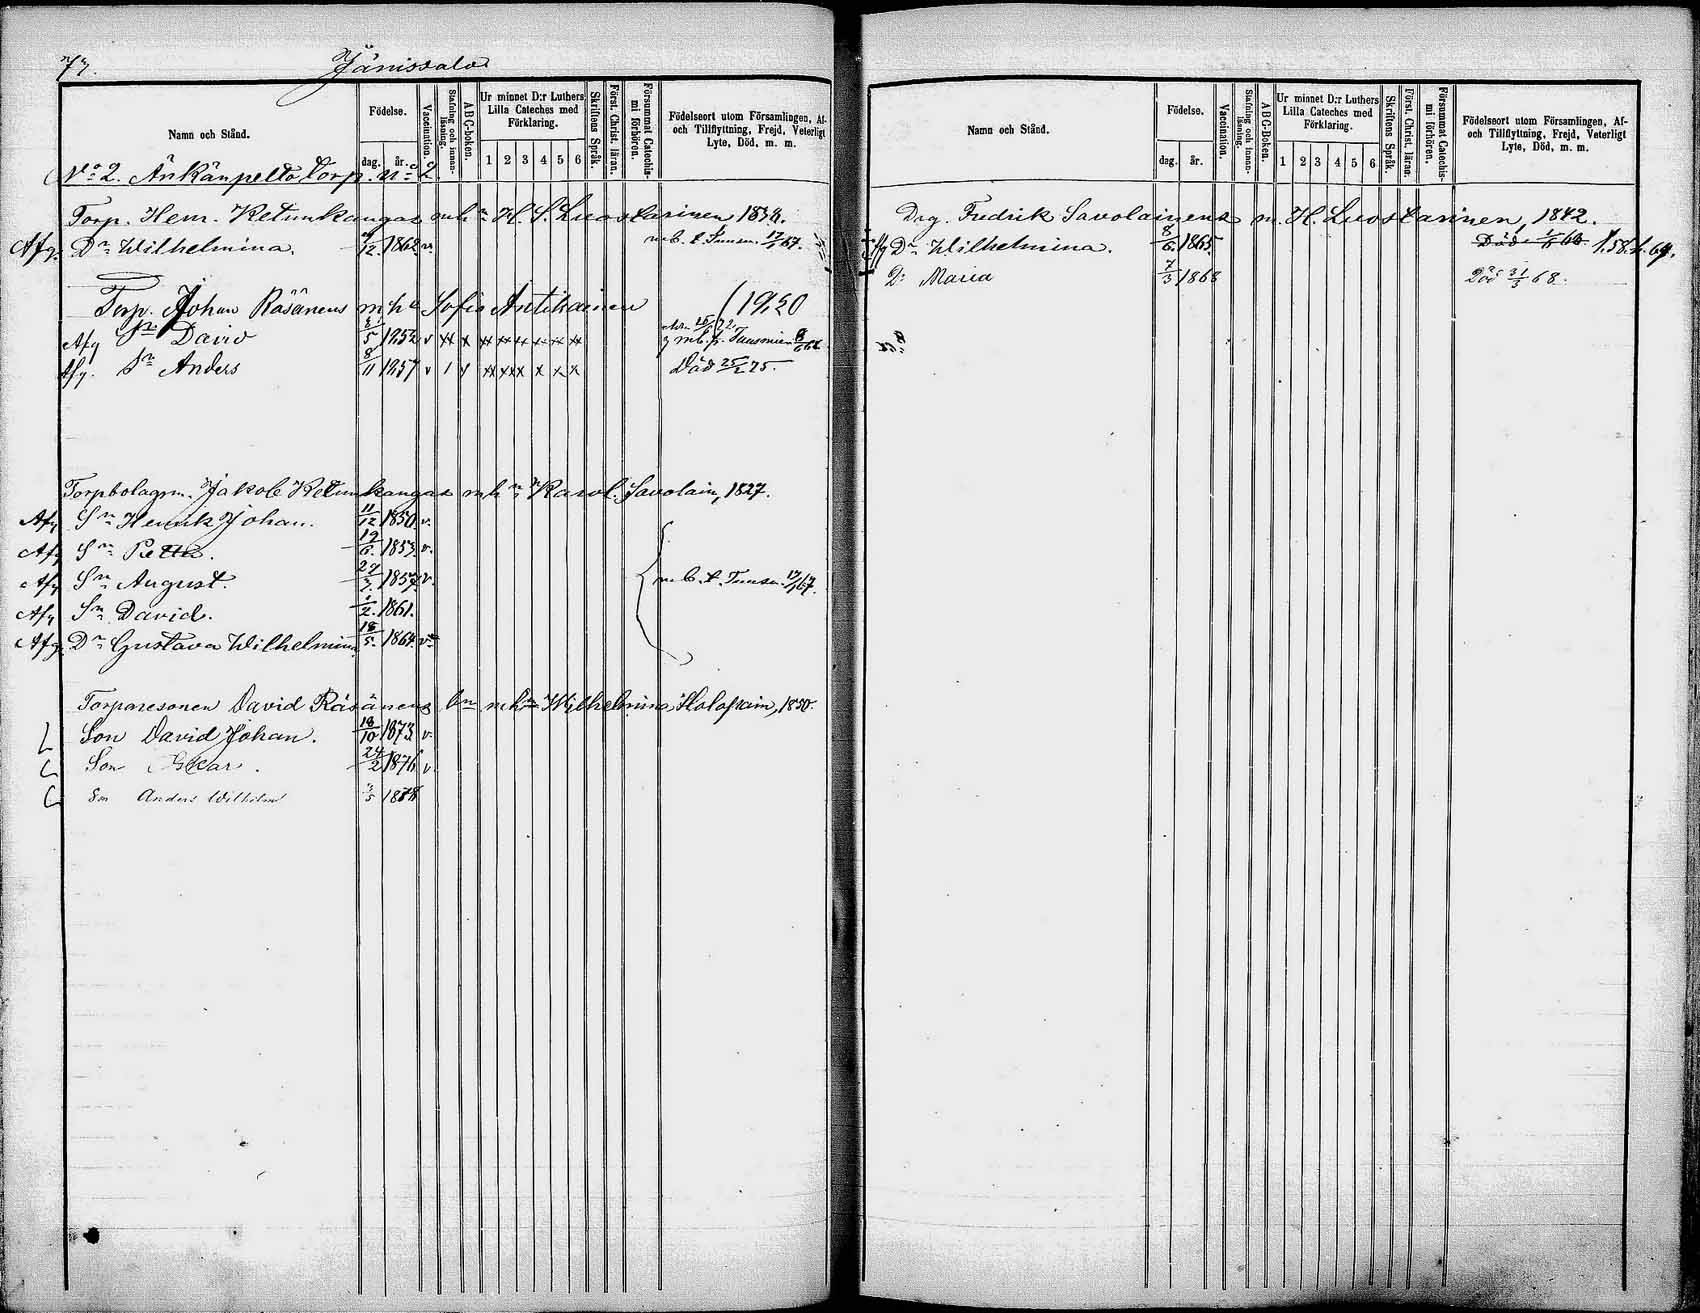 73. Jänissalo
Namn och Stånd.
Födelse.
dag. år.
Vaccination.
Stafning och innanläsning.
ABC-boken.
Ur minnet D:r Luthers Lilla Cateches med Förklaring.
1 2 3 4 5 6
Skriftens Språk.
Först. Christ. läran.
Försummat Catechismi förhören.
Födelseort utom Församlingen, Af- och Tillflyttning, Frejd, Veterligt Lyte, Död, m. m.
No 2. Änkänpelto torp. No 2
Torp. Henr. Ketunkangas m h:n H. S. Luostarinen 1834.
Afg. D:n Wilhelmina. /12 1862 v. m b. t. 17/67.
Torp. Johan Räsänens m h:n Sofia Antikainen (19,20
Afg S:n David 5 1852 v x x x x x x x x
Afg. S:n Anders 8/11 1857 v 1 x x x x x x x Död 25/2 75.
Torpbolagsm. Jakob Ketunkangas m h:n Karol. Savolain, 1827.
Afg S:n Henrik Johan. 11/12 1850. v.
Afg S:n Petter. 19/6. 1853. v.
Afg S:n August. 1857. v. m b. t. 17/67.
Afg S:n David. 1/2. 1861.
Afg. D:n Gustava Wilhelmina 18/5. 1864. v.
Torparesonen David Räsänens b:n m h:n Wilhelmina Holopain, 1850.
Son David Johan. 18/10 1873 v.
Son Oskar. 24/2 1876 v
Son Anders Wilhelm /5 1878
Namn och Stånd.
Födelse.
dag. år.
Vaccination.
Stafning och innanläsning.
ABC-Boken.
Ur minnet D:r Luthers Lilla Cateches med Förklaring.
1 2 3 4 5 6
Skriftens Språk.
Först. Christ. läran.
Försummat Catechismi förhören.
Födelseort utom Församlingen, Af- och Tillflyttning, Frejd, Veterligt Lyte, Död, m. m.
Drg. Fredrik Savolainens m. H. Luostarinen, 1842.
Afg D:n Wilhelmina. 8/6 1865. Död 1/6 68. P. 58. t. 69.
D: Maria 7/3 1868 Död 31/5 68.